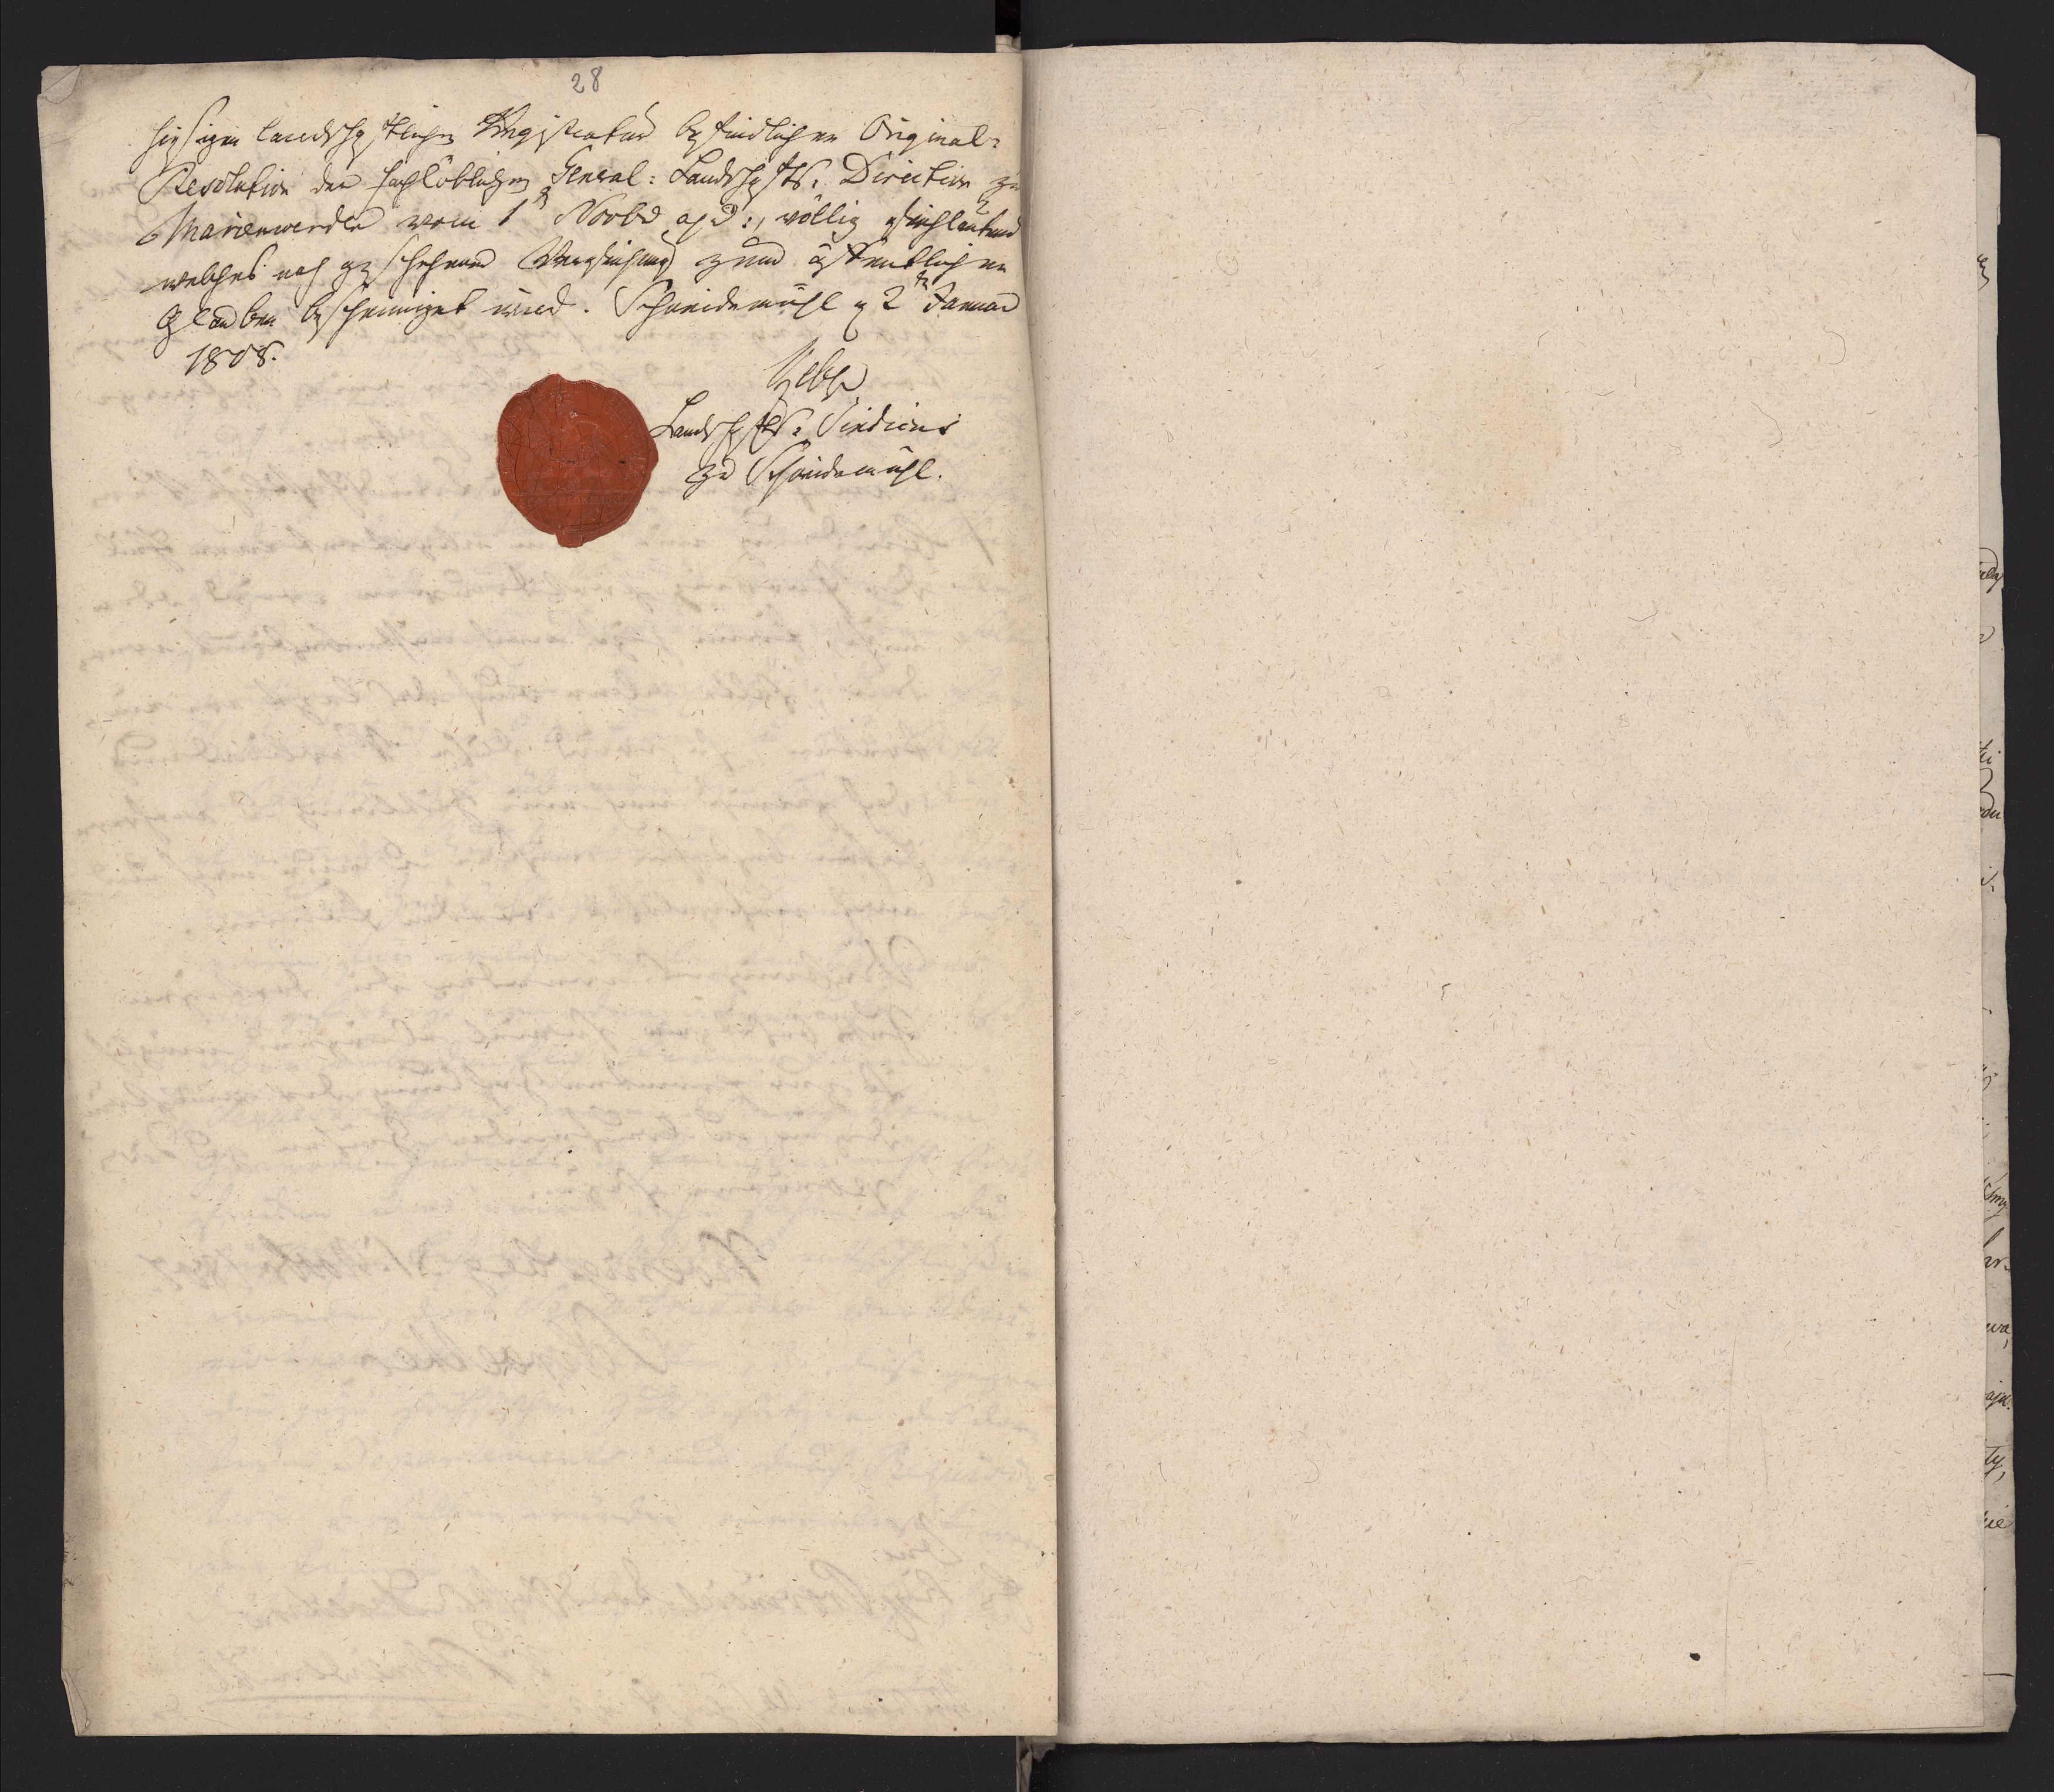 28
hiesigen landschaftlichen Registratur befindlichen Original-
Resolution der hochlöblichen General-Landschafts-Direction zu
Marienwerder vom 1t Novbr a. p. völlig gleichlautend
welches nach geschehener Vergleichung zum öffentlichen
Glauben bescheiniget wird. Schneidemühl d 2t Januar
1808.
Landschafts-Sindicus
zu Schneidemühl.